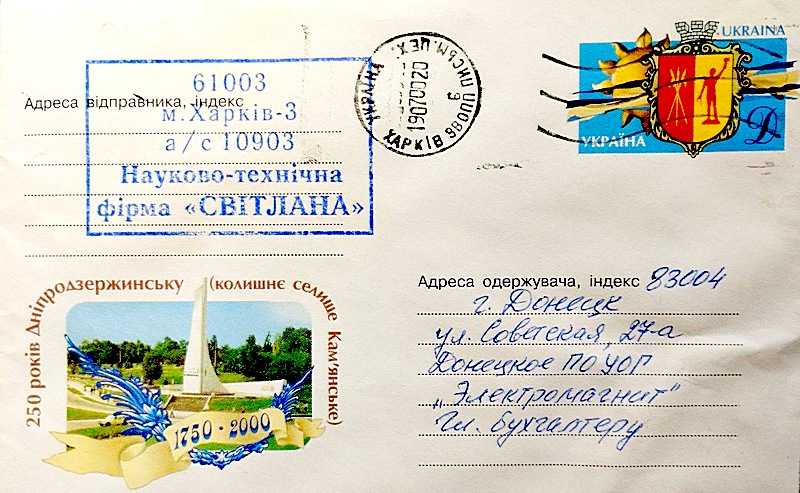 61003
Адреса відправника, індекс
м. Харків-3
а/с 10903
Науково-технічна
фірма «СВІТЛАНА»
УКРАЇНА ПИСЬМ. ЦЕХ.
19070020
9
ХАРКІВ
UKRAINA
УКРАЇНА
Д
250 років Дніпродзержинську (колишнє селище Кам'янське)
1750 · 2000
Адреса одержувача, індекс 83004
г. Донецк
ул. Советская, 27-а
Донецкое ПО УОГ
„Электромагнит"
Гл. бухгалтеру